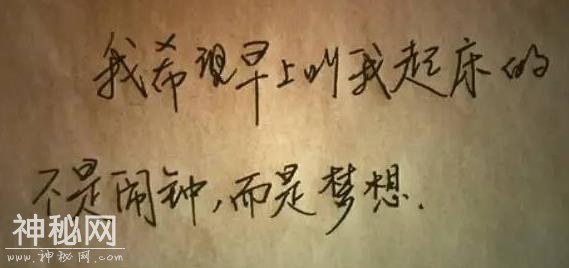 我希望早上叫我起床的
不是闹钟,而是梦想.
神秘网
www.神秘网.com